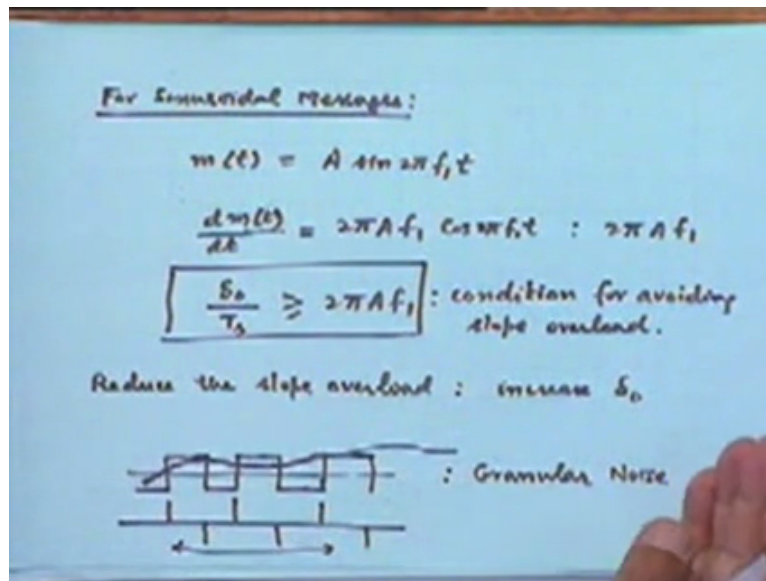 For Sinusoidal Messages:
m(t) = A sin 2πf₁t
dm(t)/dt = 2πAf₁ Cos 2πf₁t : 2πAf₁
δ₀/Tₛ ≥ 2πAf₁ : condition for avoiding
slope overload.
Reduce the slope overload : increase δ₀
: Granular Noise